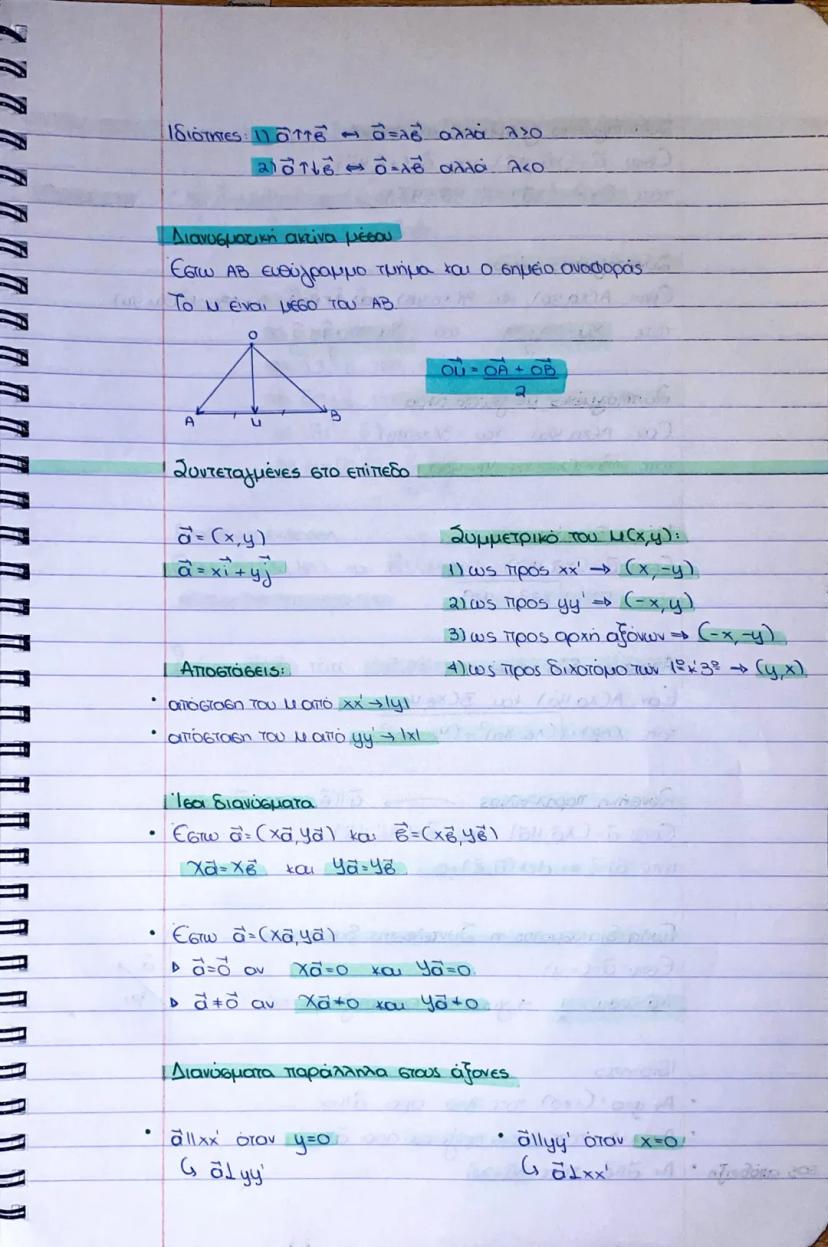 Ιδιότητες: 1) α⃗↑↑β⃗ ↔ α⃗=λβ⃗ αλλά λ>0
2) α⃗↑↓β⃗ ↔ α⃗=λβ⃗ αλλά λ<0
Διανυσματική ακτίνα μέσου
Έστω ΑΒ ευθύγραμμο τμήμα και Ο σημείο αναφοράς
Το Μ είναι μέσο του ΑΒ
Ο
ΟΜ⃗ = ΟΑ⃗ + ΟΒ⃗
2
Α Μ Β
Συντεταγμένες στο επίπεδο
α⃗ = (x,y)
α⃗ = xi⃗ + yj⃗
Συμμετρικό του Μ(x,y):
1) ως προς xx' → (x,-y)
2) ως προς yy' → (-x,y)
3) ως προς αρχή αξόνων → (-x,-y)
4) ως προς διχοτόμο των 1º κ' 3º → (y,x)
Αποστάσεις:
• απόσταση του Μ από xx' → |y|
• απόσταση του Μ από yy' → |x|
Ίσα διανύσματα
• Έστω α⃗=(xα⃗,yα⃗) και β⃗=(xβ⃗,yβ⃗)
xα⃗=xβ⃗ και yα⃗=yβ⃗
• Έστω α⃗=(xα⃗,yα⃗)
▷ α⃗=0⃗ αν xα⃗=0 και yα⃗=0
▷ α⃗≠0⃗ αν xα⃗≠0 και yα⃗≠0
Διανύσματα παράλληλα στους άξονες
• α⃗||xx' όταν y=0
↳ α⃗⊥yy'
• α⃗||yy' όταν x=0
↳ α⃗⊥xx'